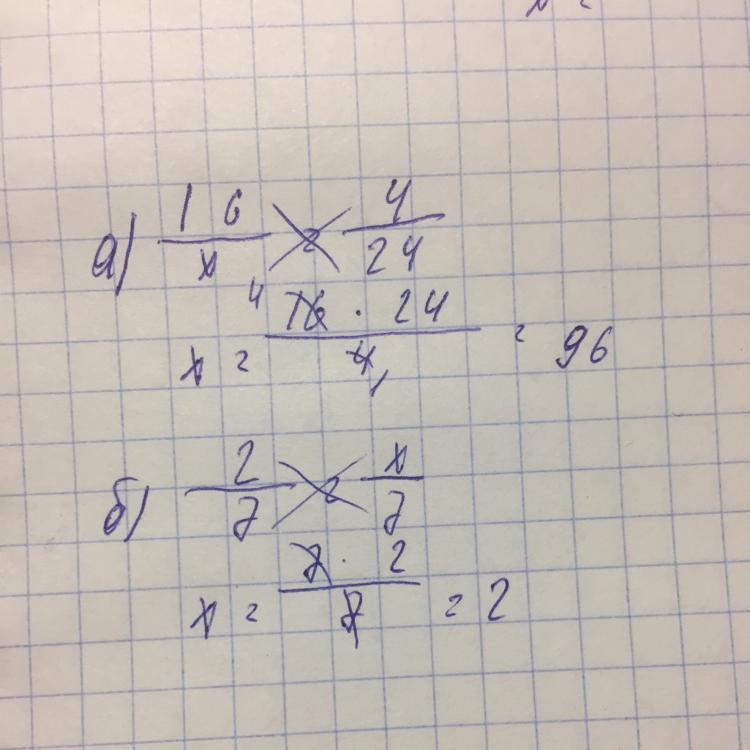 а) 16/x = 4/24
x = 16 · 24 / 4 = 96
б) 2/7 = x/7
x = 7 · 2 / 7 = 2